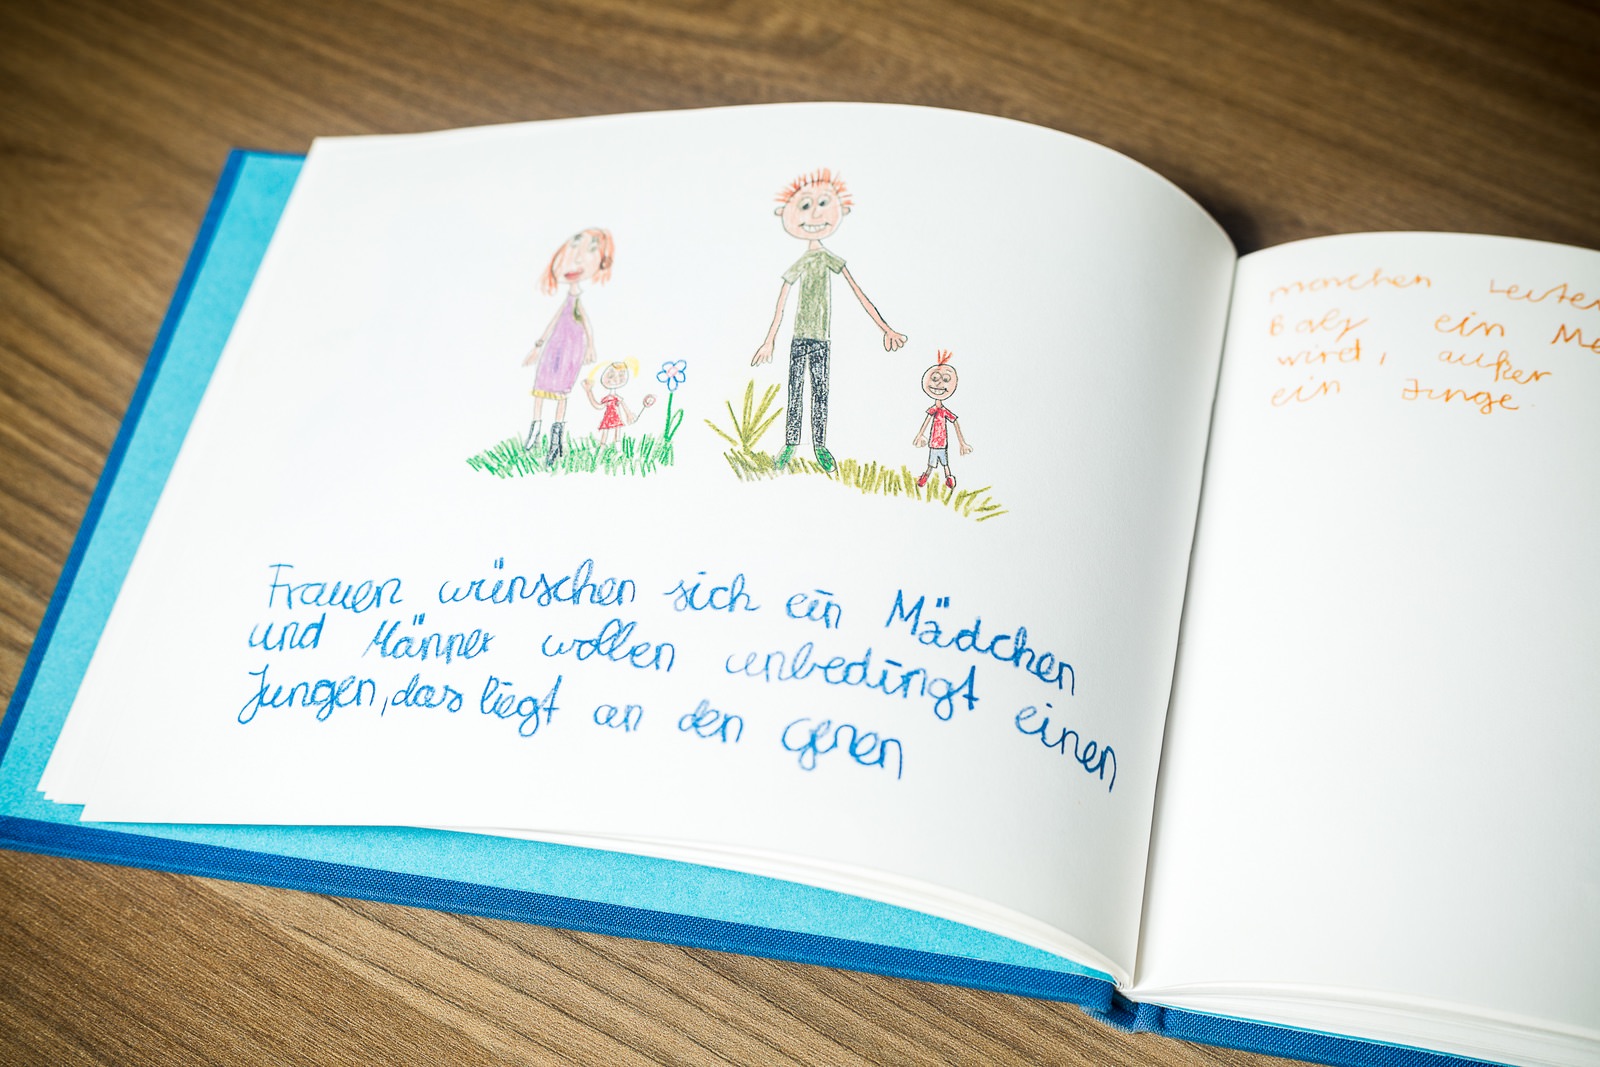 Frauen wünschen sich ein Mädchen
und Männer wollen unbedingt einen
Jungen, das liegt an den Genen
manchen
Baby ein
wird, außer
ein Junge.